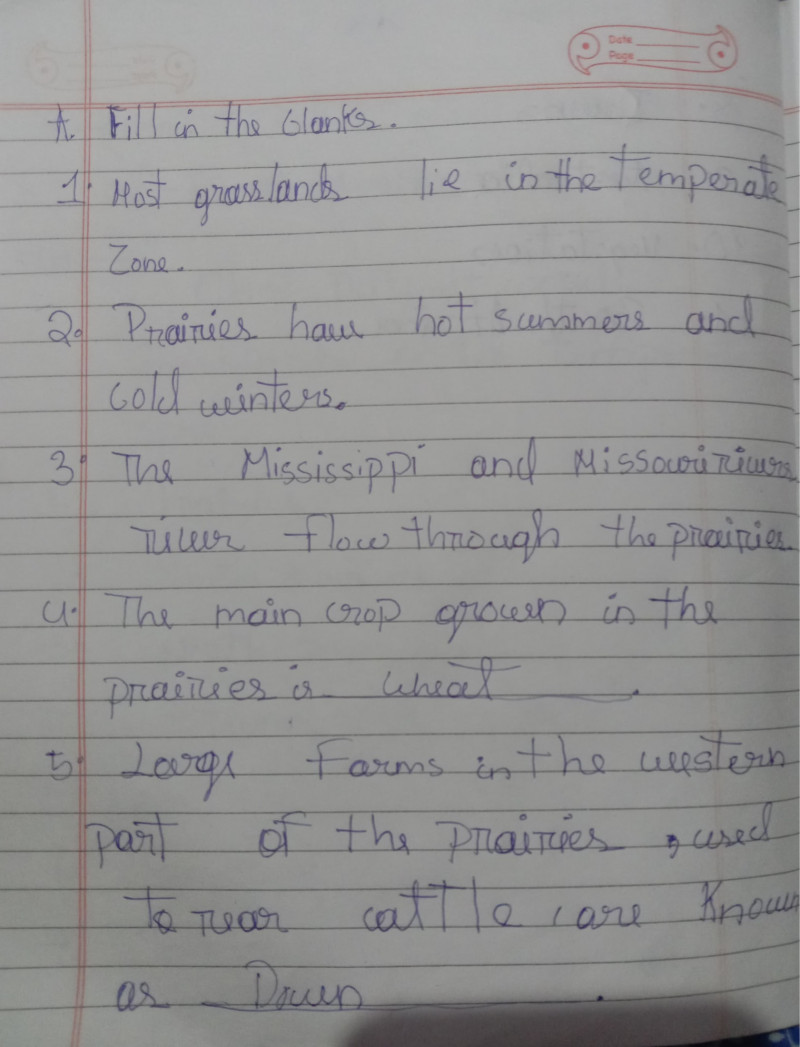 Date
Page
A. Fill in the blanks.
1. Most grasslands lie in the Temperate
Zone.
2. Prairies have hot summers and
cold winters.
3. The Mississippi and Missouri rivers
river flow through the prairies
4. The main crop grown in the
prairies is wheat.
5. Large Farms in the western
part of the prairies, used
to rear cattle are Known
as Down.